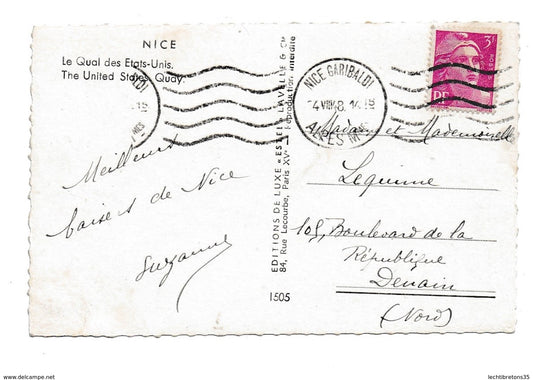 NICE
Le Quai des Etats-Unis.
The United States Quay.
Meilleurs
baisers de Nice
Suzanne
EDITIONS DE LUXE - ESTEL - LAVELLE & Cie
84, Rue Lecourbe, Paris XVe - Reproduction interdite
1505
NICE GARIBALDI
ALPES Mmes
3F
RF
Madame et Mademoiselle
Lequime
105, Boulevard de la
République
Denain
(Nord)
www.delcampe.net
lechtibretons35